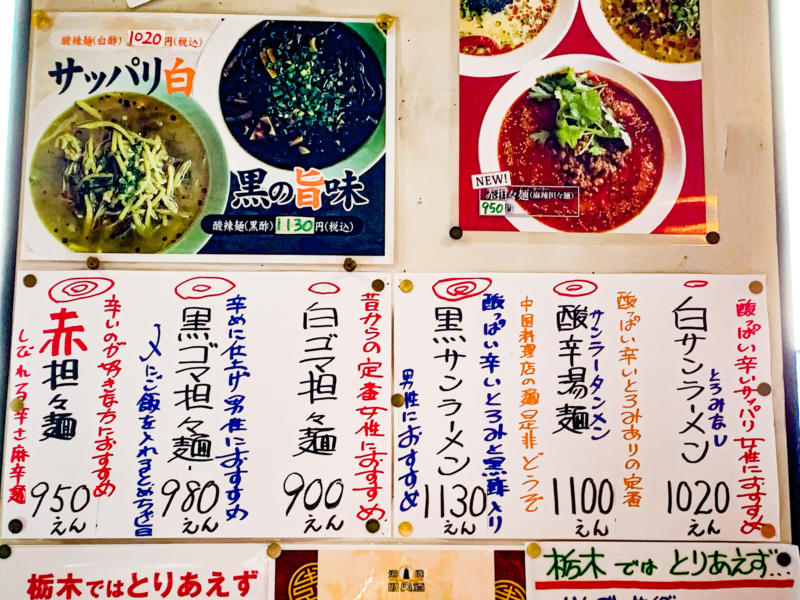 酸辣麺(白酢) 1020円(税込)
サッパリ白
黒の旨味
酸辣麺(黒酢) 1130円(税込)
NEW!
赤担々麺(麻辣担々麺)
950円
酸っぱい辛いサッパリ女性におすすめ
白サンラーメン
とろみなし
1020えん
酸っぱい辛いとろみありの定番
サンラータンメン
酸辛湯麺
1100えん
中国料理店の麺是非どうぞ
酸っぱい辛いとろみと黒酢入り
黒サンラーメン
1130えん
男性におすすめ
昔からの定番女性におすすめ
白ゴマ担々麺
900えん
辛めに仕上げ男性におすすめ
黒ゴマ担々麺
980えん
〆にご飯を入れるとめちゃ旨
辛いのが好きな方におすすめ
赤担々麺
950えん
しびれる辛さ麻辛麺
栃木ではとりあえず
栃木ではとりあえず...